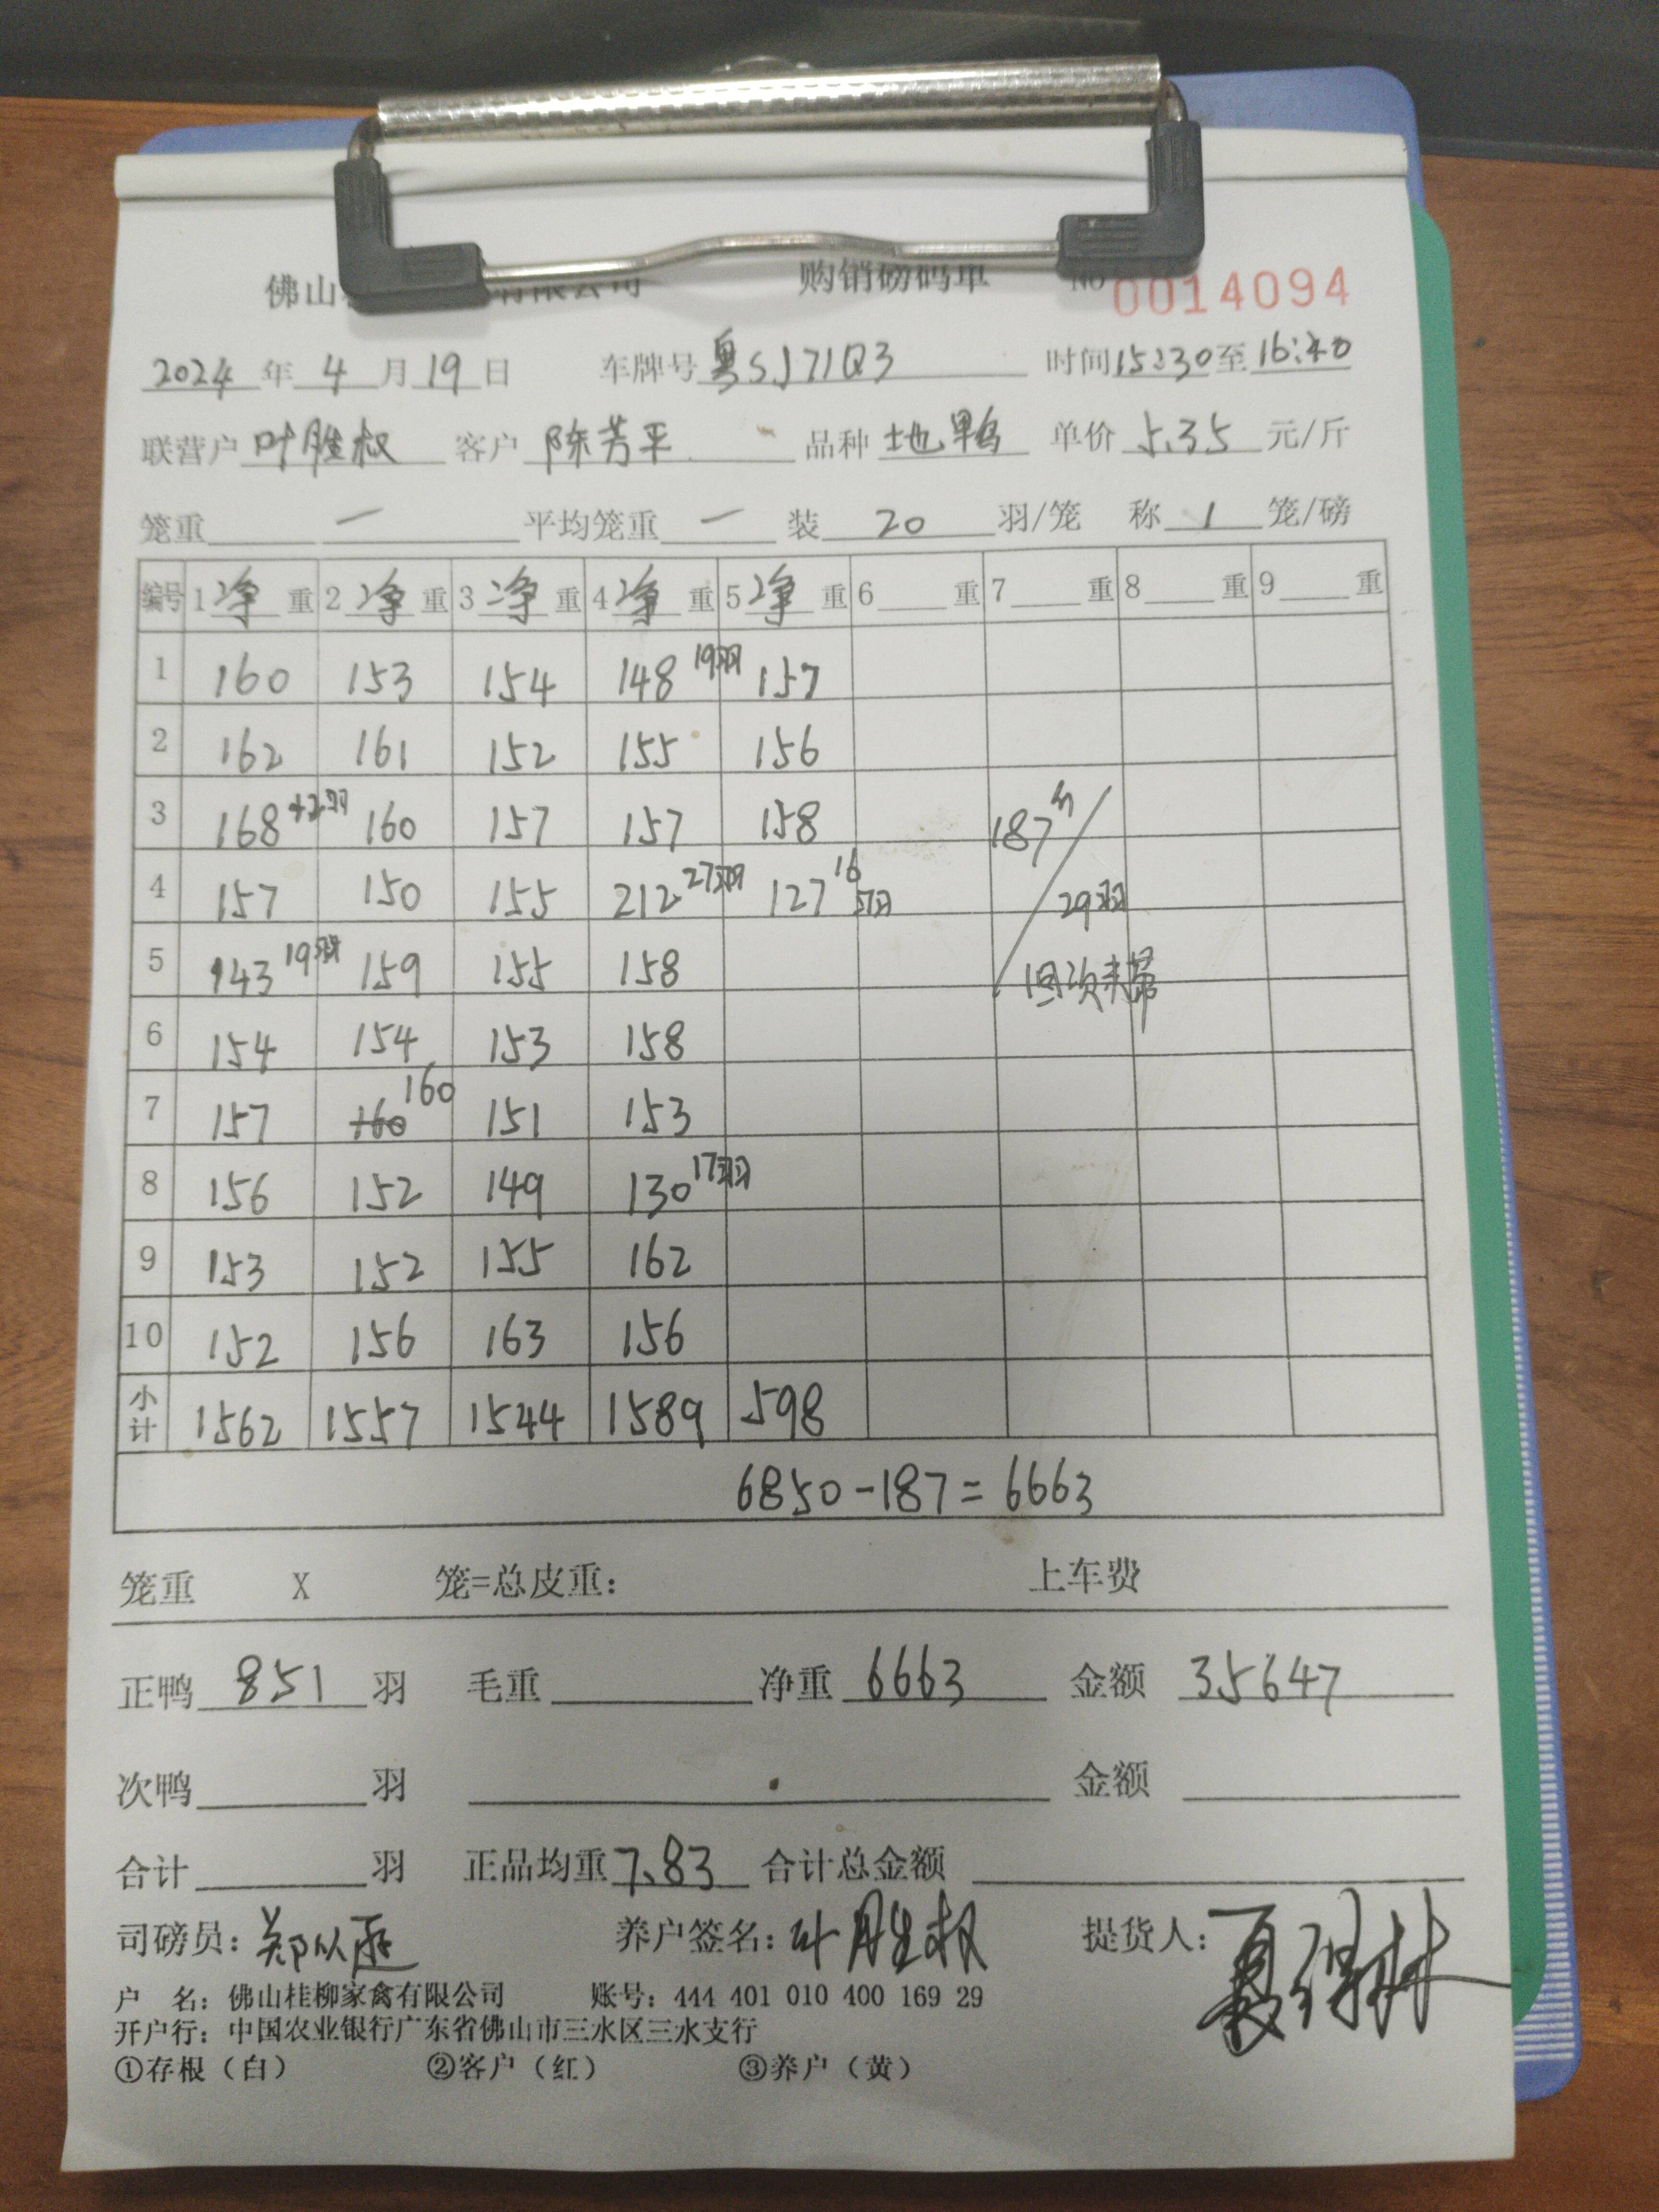 佛山 有限公司 购销磅码单 No 0014094
2024年4月19日 车牌号粤SJ71Q3 时间15:30至16:40
联营户叶胜权 客户陈芳平 品种地鸭 单价5.35元/斤
笼重 一 平均笼重一 装20羽/笼 称1笼/磅
编号 1净重 2净重 3净重 4净重 5净重 6重 7重 8重 9重
1 160 153 154 148 19羽 157
2 162 161 152 155 156
3 168 +2羽 160 157 157 158 187斤
4 157 150 155 212 27羽 127 16羽 29羽
5 143 19羽 159 155 158
6 154 154 153 158
7 157 160 160 151 153
8 156 152 149 130 17羽
9 153 152 155 162
10 152 156 163 156
小计 1562 1557 1544 1589 598
6850-187=6663
笼重 X 笼=总皮重: 上车费
正鸭851羽 毛重 净重6663 金额35647
次鸭 羽 金额
合计 羽 正品均重7.83 合计总金额
司磅员: 养户签名:叶胜权 提货人:
户 名:佛山桂柳家禽有限公司 账号:444 401 010 400 169 29
开户行:中国农业银行广东省佛山市三水区三水支行
①存根(白) ②客户(红) ③养户(黄)